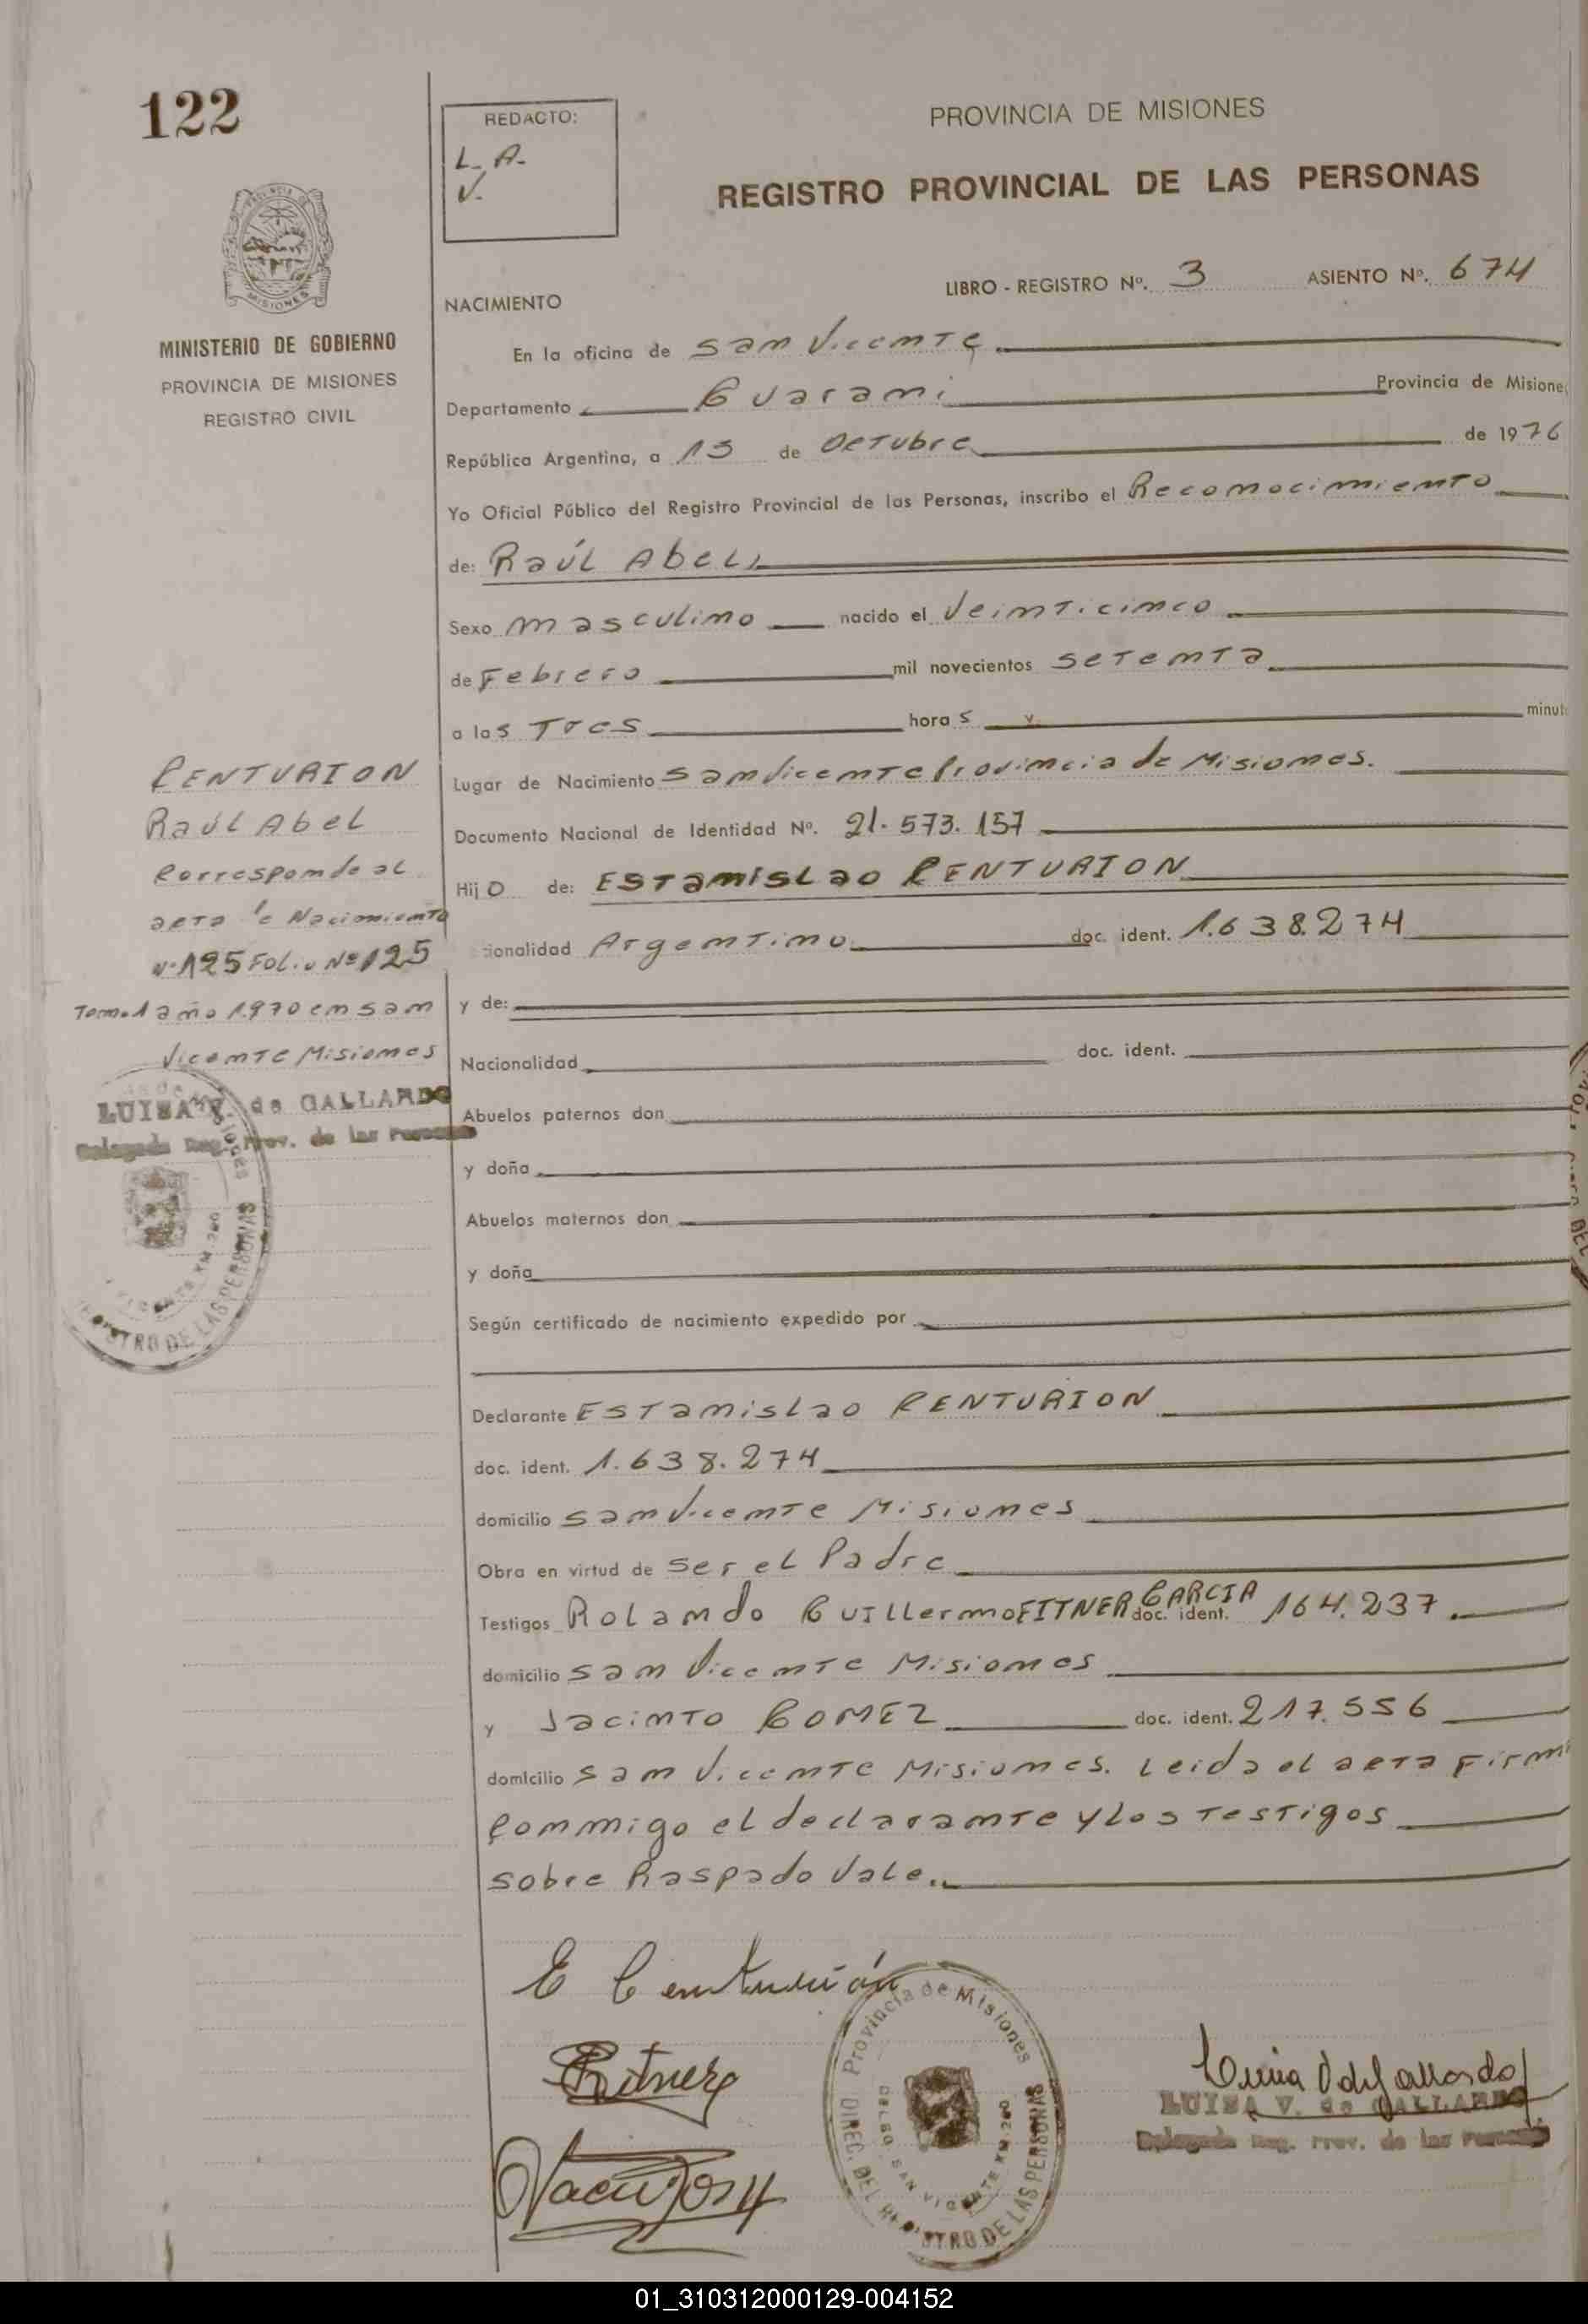 122
REDACTO:
L. A.
V.
PROVINCIA DE MISIONES
REGISTRO PROVINCIAL DE LAS PERSONAS
MISIONES
MINISTERIO DE GOBIERNO
PROVINCIA DE MISIONES
REGISTRO CIVIL
LIBRO - REGISTRO Nº. 3 ASIENTO Nº. 674
NACIMIENTO
En la oficina de San Vicente
Departamento Guarani Provincia de Misione
República Argentina, a 13 de Octubre de 1976
Yo Oficial Público del Registro Provincial de las Personas, inscribo el Reconocimiento
de: Raúl Abel
Sexo masculino nacido el Veinticinco
de Febrero mil novecientos setenta
a las Tres horas minut
Lugar de Nacimiento San Vicente Provincia de Misiones.
Documento Nacional de Identidad Nº. 21.573.157
Hijo de: Estanislao CENTURION
ionalidad Argentino doc. ident. 1.638.274
y de:
Nacionalidad doc. ident.
Abuelos paternos don
y doña
Abuelos maternos don
y doña
Según certificado de nacimiento expedido por
Declarante Estanislao CENTURION
doc. ident. 1.638.274
domicilio San Vicente Misiones
Obra en virtud de ser el Padre
Testigos Rolando Guillermo FITNER GARCIA doc. ident. 164.237.
domicilio San Vicente Misiones
y Jacinto GOMEZ doc. ident. 217.556
domicilio San Vicente Misiones. Leida el acta Firm
Conmigo el declarante y los Testigos
sobre Raspado Vale.
CENTURION
Raúl Abel
Corresponde al
acta de Nacimiento
Nº 125 Folio Nº 125
Tomo 1 año 1970 en San
Vicente Misiones
LUISA V. de GALLARDO
Delegada Reg. Prov. de las Personas
REGISTRO DE LAS PERSONAS
E Centurión
Provincia de Misiones
DIREC. DEL REGISTRO DE LAS PERSONAS
DELEG. SAN VICENTE KM. 260
Luisa V de Gallardo
LUISA V. de GALLARDO
Delegada Reg. Prov. de las Personas
01_310312000129-004152